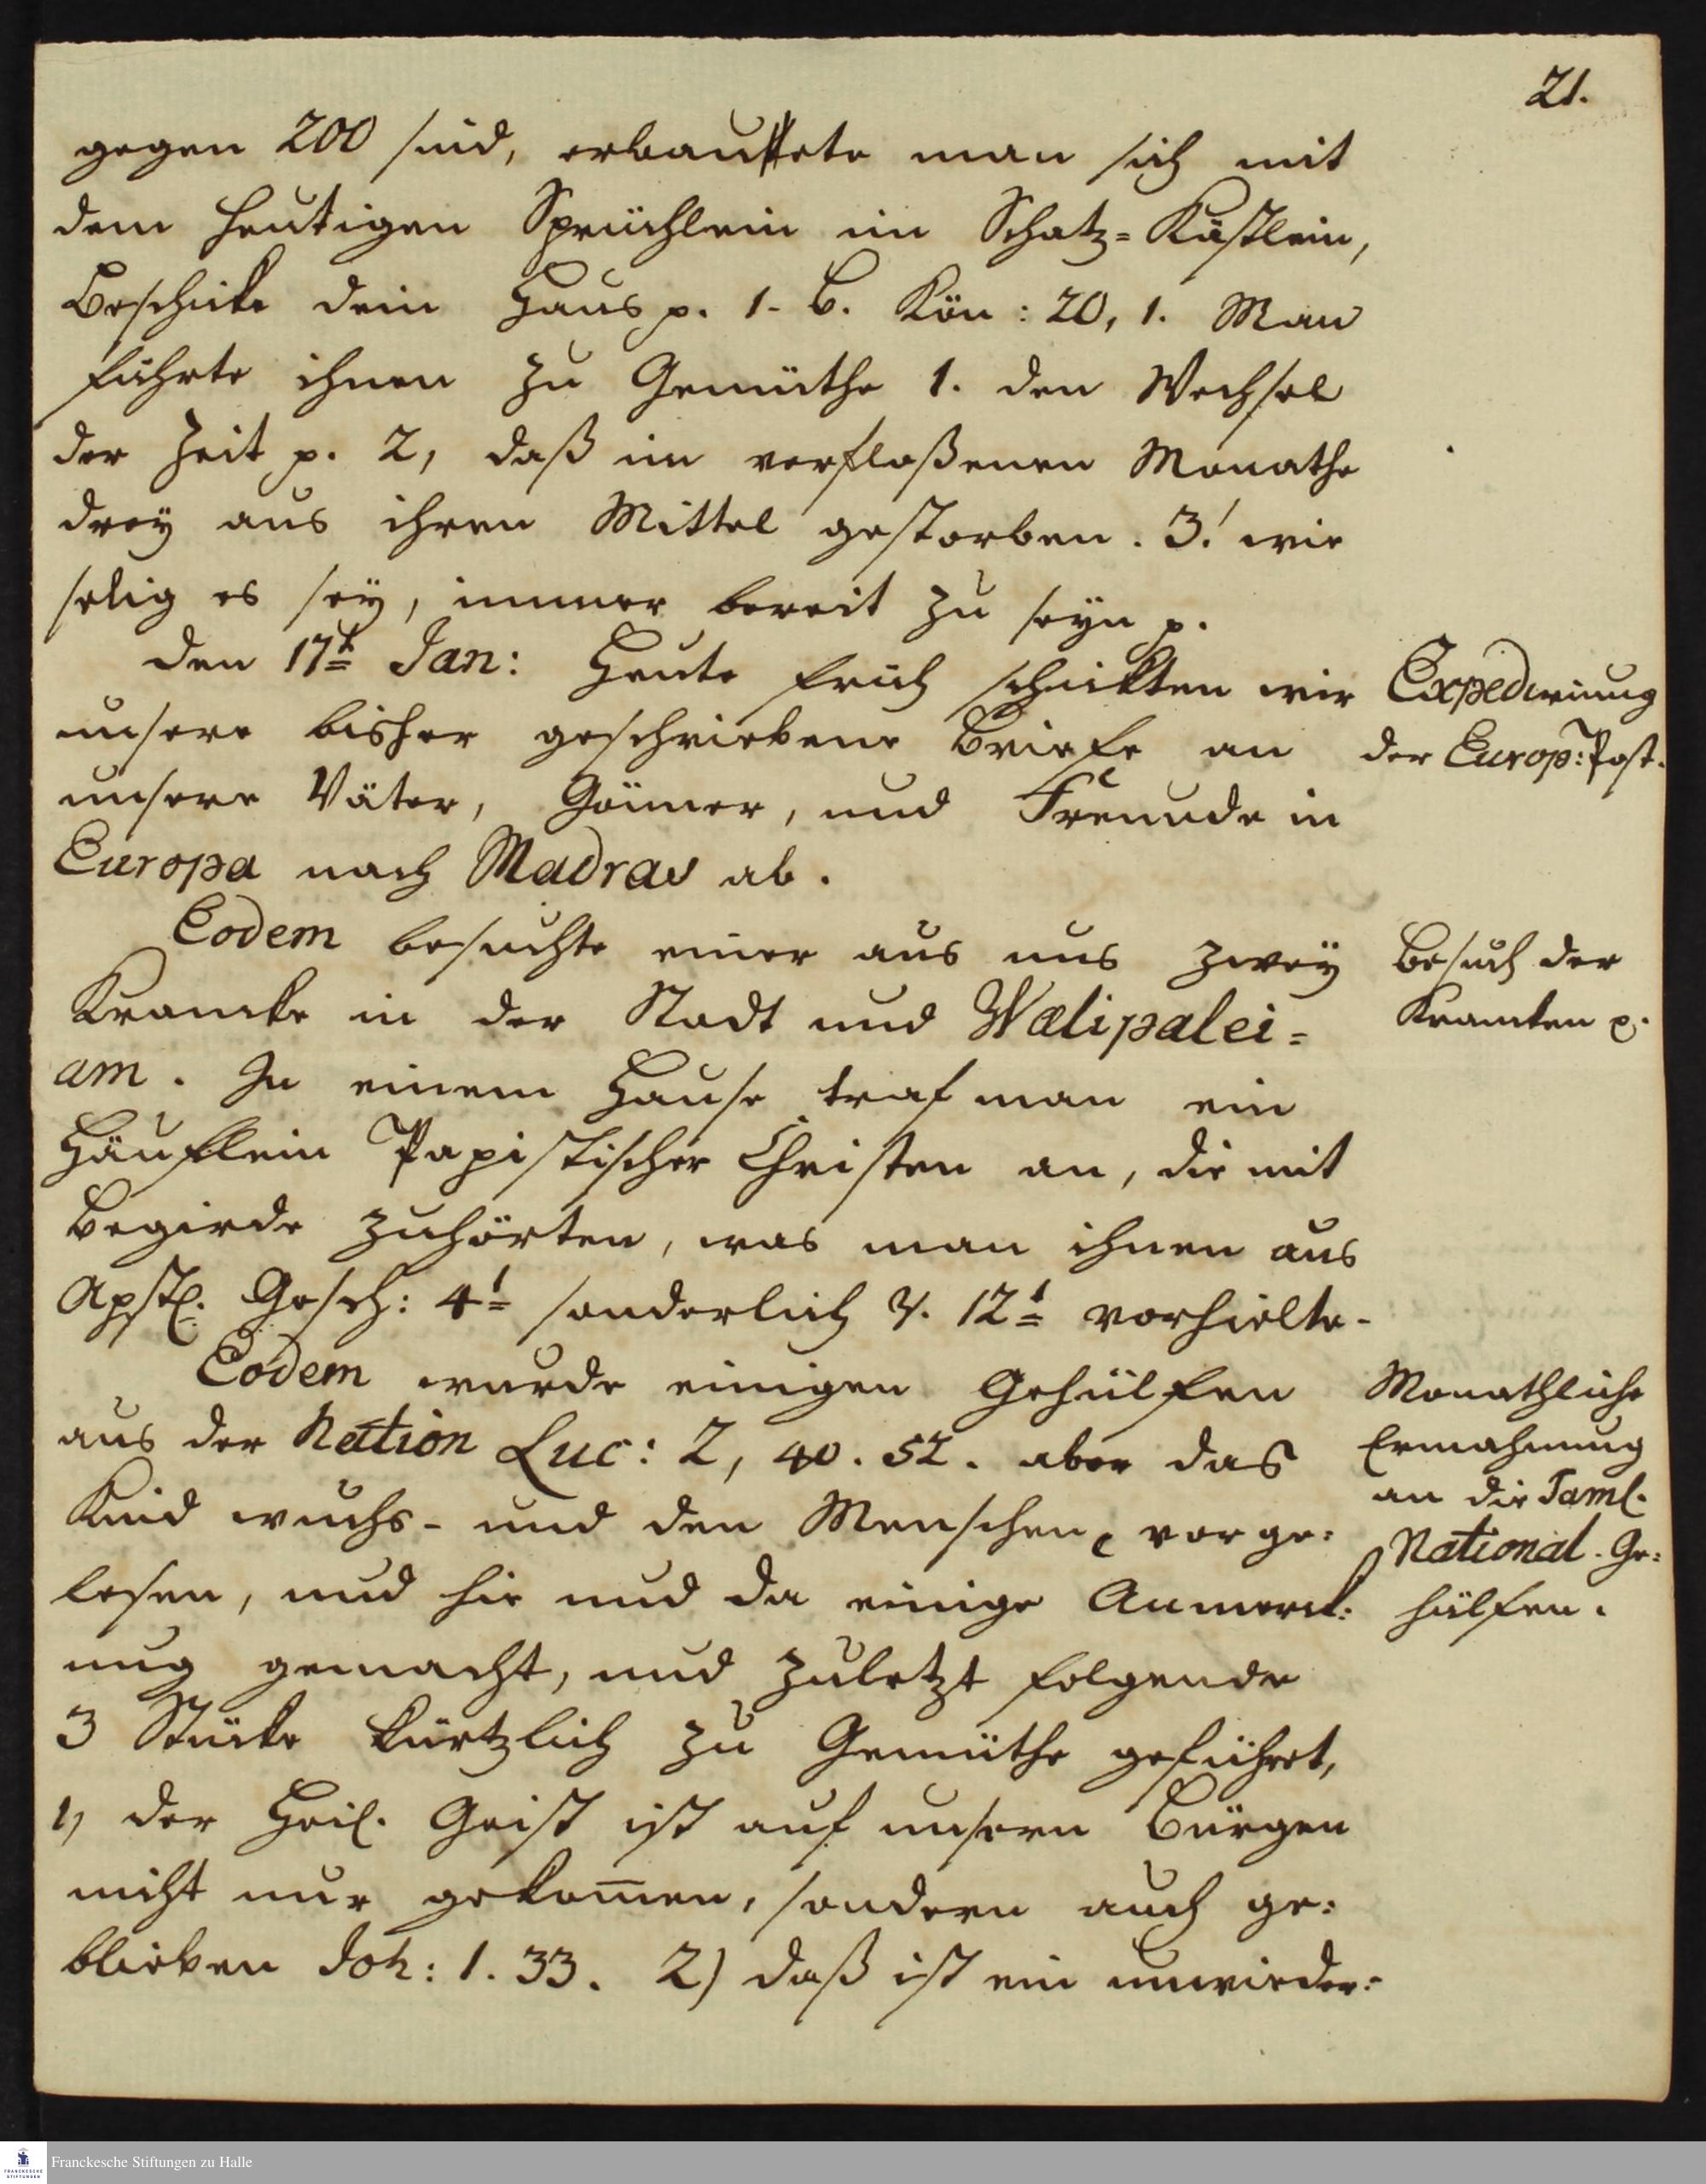 21.
gegen 200 sind, erbauete man sich mit
dem heutigen Sprüchlein im Schatz=Kästlein,
Beschicke dein Haus p. 1. B. Kön: 20, 1. Man
führte ihnen zu Gemüthe 1. den Wechsel
der Zeit p. 2, daß im verfloßenen Monathe
drey aus ihren Mittel gestorben. 3. wie
selig es sey, immer bereit zu seyn p.
Den 17t Jan: Heute früh schickten wir
unsere bisher geschriebene Briefe an
unsere Väter, Gönner, und Freunde in
Europa nach Madras ab.
Expedirung
der Europ: Post.
Eodem besuchte einer aus uns zwey
Krancke in der Stadt und Wœlipalei=
am. In einem Hause traf man ein
Häuflein Papistischer Christen an, die mit
Begirde zuhörten, was man ihnen aus
Apstl. Gesch: 4t sonderlich v. 12t vorhielte.
Besuch der
Krancken p.
Eodem wurde einigen Gehülfen
aus der Nation Luc: 2, 40. 52. aber das
Kind wuchs - und den Menschen, vorge:
lesen, und hie und da einige Anmerck:
ung gemacht, und zuletzt folgende
3 Stücke kürtzlich zu Gemüthe geführet,
1, der Heil. Geist ist auf unsern Bürgen
nicht nur gekom̄en, sondern auch ge:
blieben Joh: 1. 33. 2) daß ist ein unwieder:
Monathliche
Ermahnung
an die Taml.
National-Ge:
hülfen.
Franckesche Stiftungen zu Halle